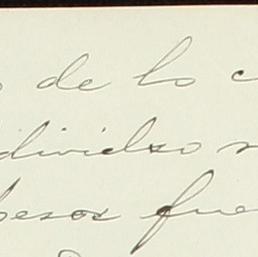 de lo
dividuo
pesos fue